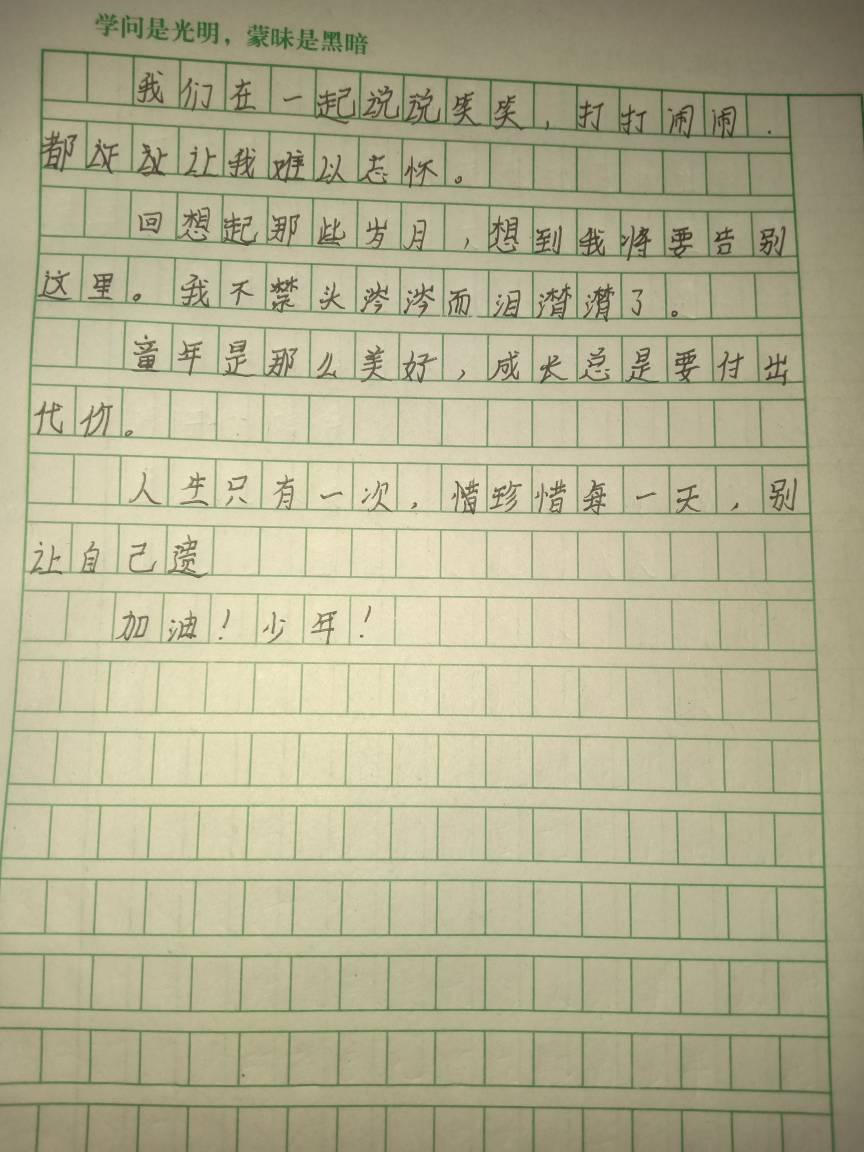 学问是光明，蒙昧是黑暗
我们在一起说说笑笑，打打闹闹．
都让我难以忘怀。
回想起那些岁月，想到我将要告别
这里。我不禁头涔涔而泪潸潸了。
童年是那么美好，成长总是要付出
代价。
人生只有一次，惜珍惜每一天，别
让自己遗
加油！少年！